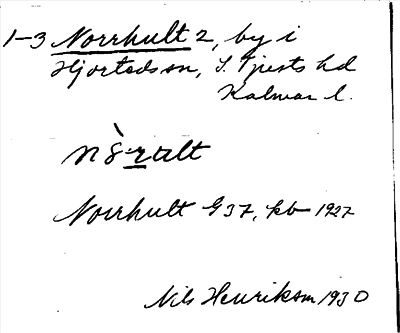 1-3 Norrhult 2, by i
Hjorteds sn, S. Tjusts hd
Kalmar l.
nò̀raḷt
Norrhult G 37, kb 1927
Nils Henrikson 1930